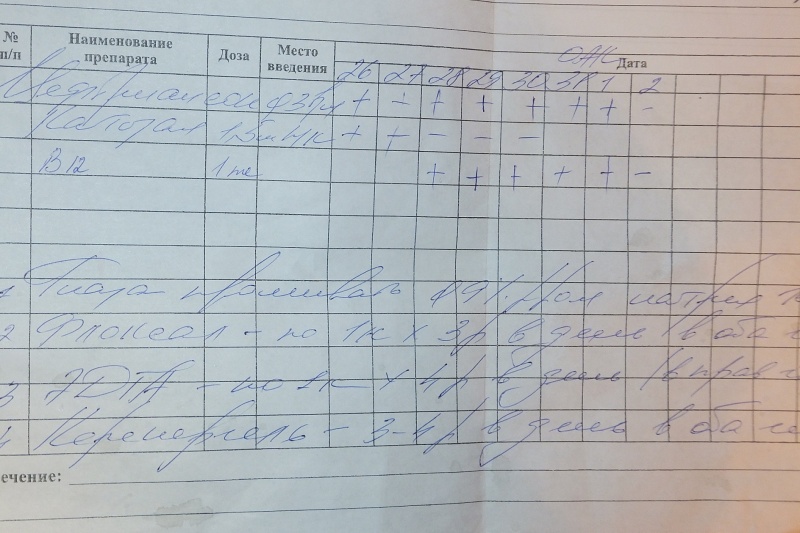 № п/п Наименование препарата Доза Место введения Дата
ОАК
26 27 28 29 30 31 1 2
+ + + + + + + -
1,5 мл п/к + + - - - -
B12 1 мл + + + + + -
Глаза промывать 0,9% натрия
2 Флоксал - по 1к х 3р в день (в оба
3 ЭДТА - по 1к х 4р в день (в прав
4 Корнерегель - 3-4р в день в оба
ечение: